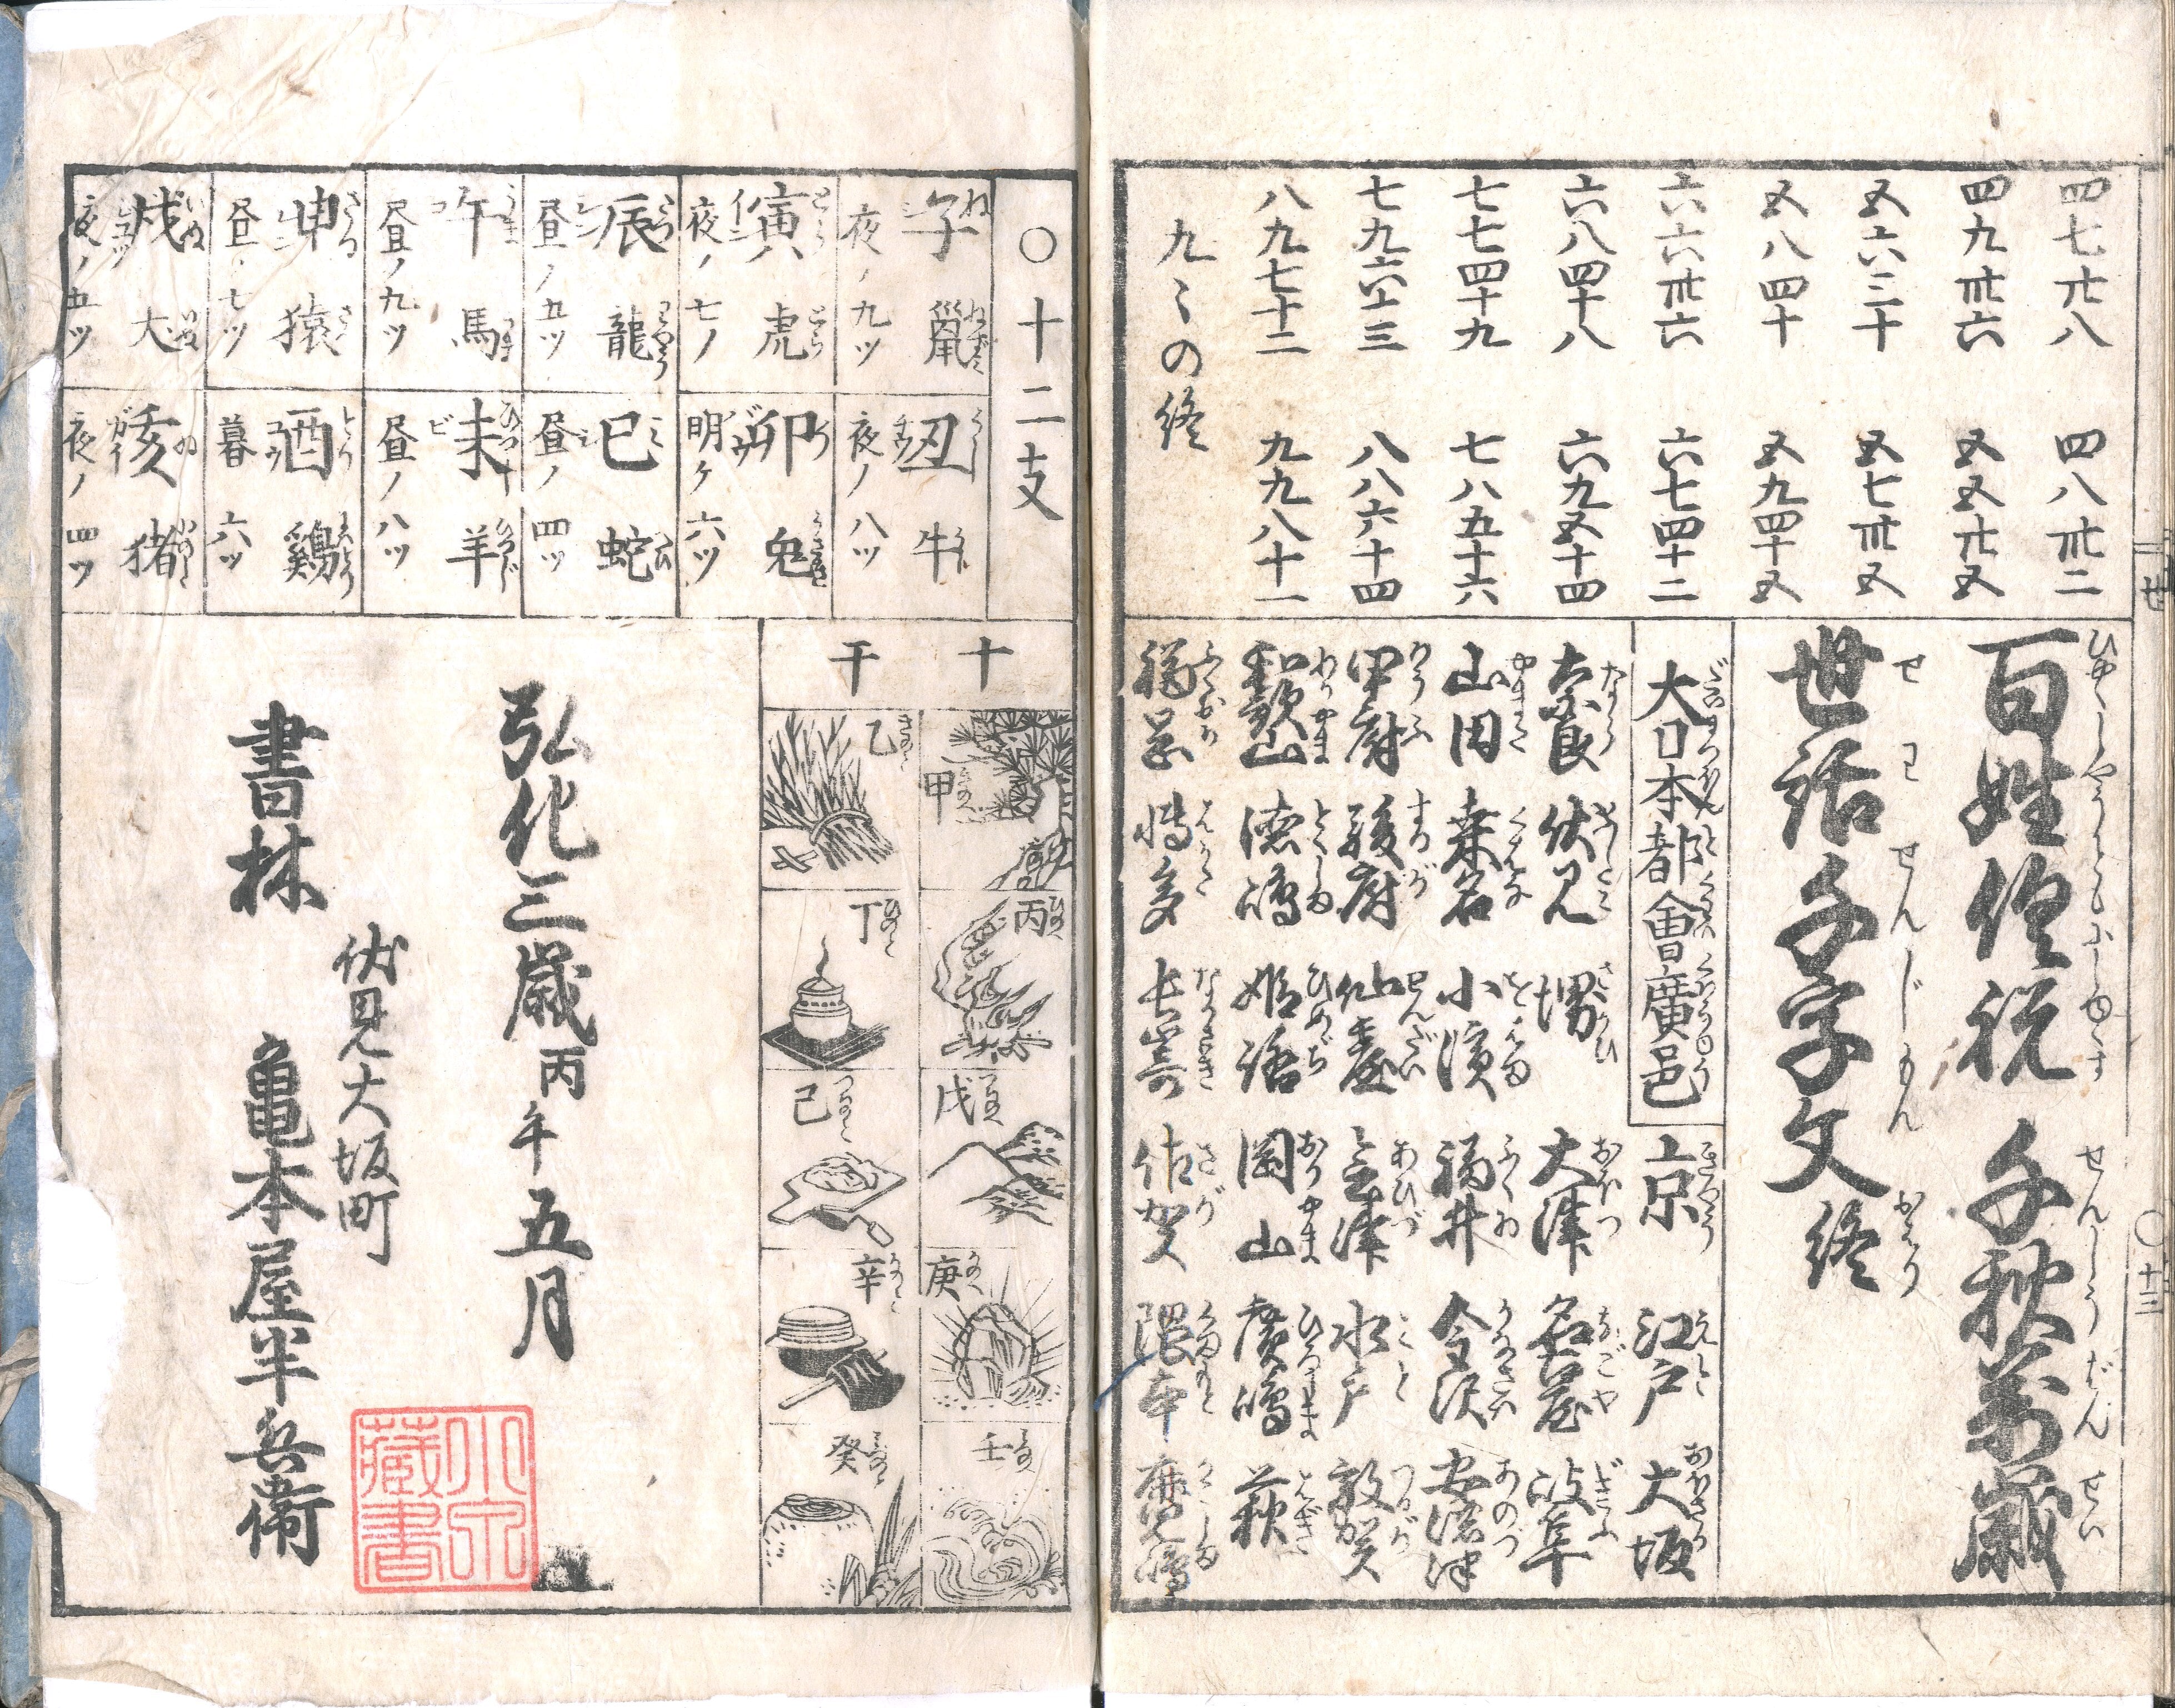 四七廿八
四八卅二
四九卅六
五五廿五
五六三十
五七卅五
五八四十
五九四十五
六六卅六
六七四十二
六八四十八
六九五十四
七七四十九
七八五十六
七九六十三
八八六十四
八九七十二
九九八十一
九〻の終
百姓
千秋萬歳
せんしうばんせい
世話千字文終
せわせんじもんおはり
大日本都會廣邑
京
江戸
大坂
奈良
伏見
堺
大津
名古屋
岐阜
山田
桒名
小濱
福井
金沢
安濃津
甲府
駿府
仙臺
会津
水戸
敦賀
和歌山
徳嶋
姫路
岡山
廣嶋
萩
福岡
博多
長崎
佐賀
隈本
鹿児嶋
〇十三
〇十二支
子
夜ノ九ツ
丑 牛
夜ノ八ツ
寅 虎
夜ノ七ツ
卯 兎
明ケ六ツ
辰 龍
昼ノ五ツ
巳 蛇
昼ノ四ツ
午 馬
昼ノ九ツ
未 羊
昼ノ八ツ
申 猿
昼ノ七ツ
酉 鶏
暮六ツ
戌 犬
夜ノ五ツ
亥 猪
夜ノ四ツ
十干
甲
乙
丙
丁
戊
己
庚
辛
壬
癸
弘化三歳丙午五月
伏見大坂町
書林 亀本屋半兵衛
藏書